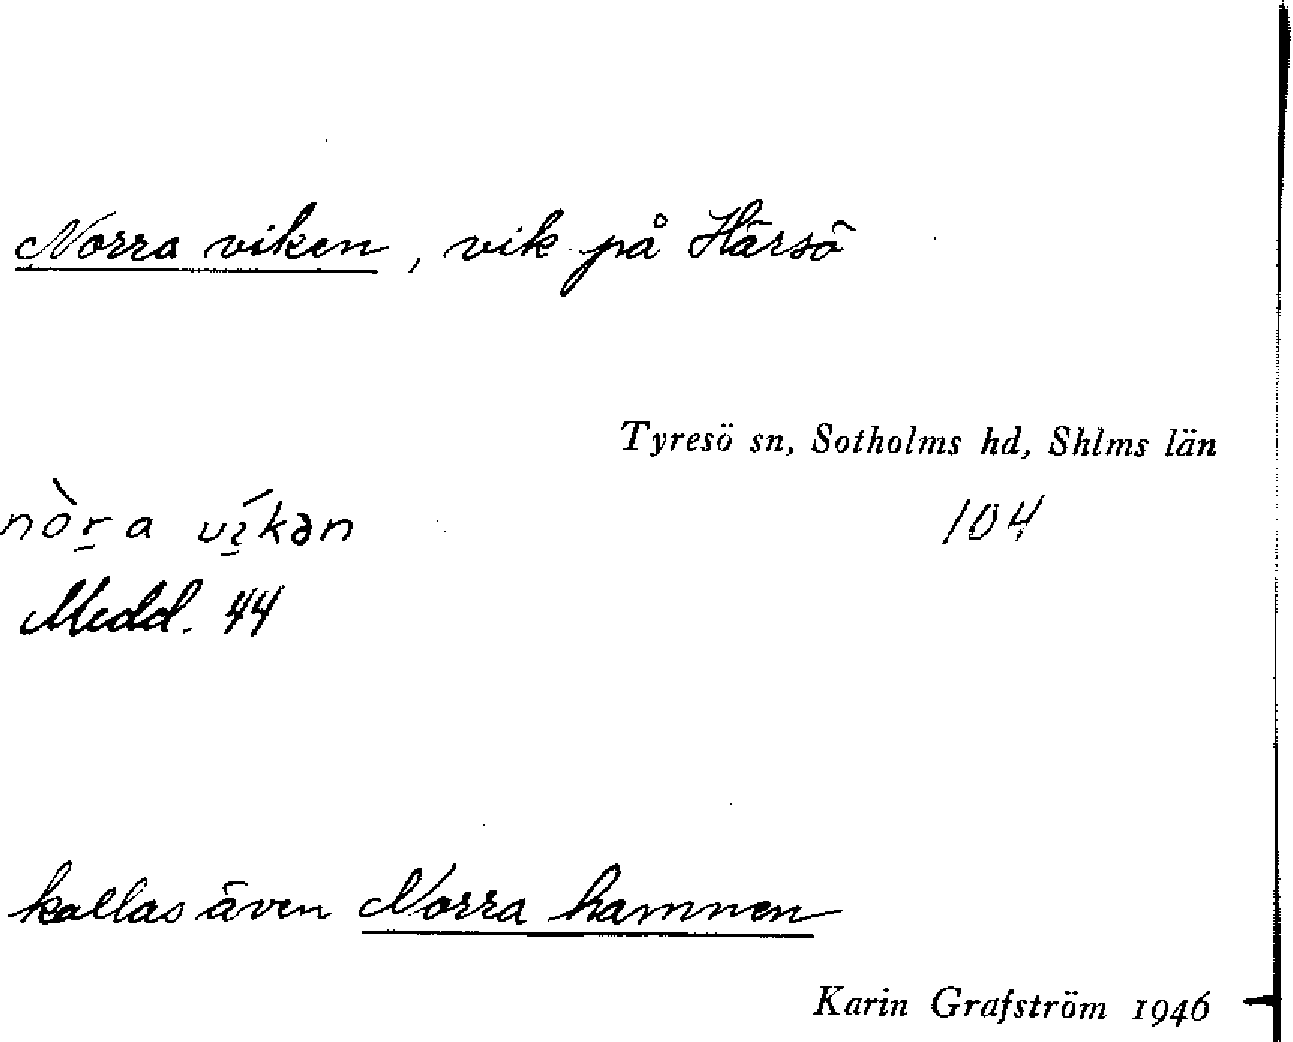 Norra viken, vik på Härsö
Tyresö sn, Sotholms hd, Shlms län
nòr̲a ví̲kən
104
Medd. 44
kallas även Norra hamnen
Karin Grafström 1946